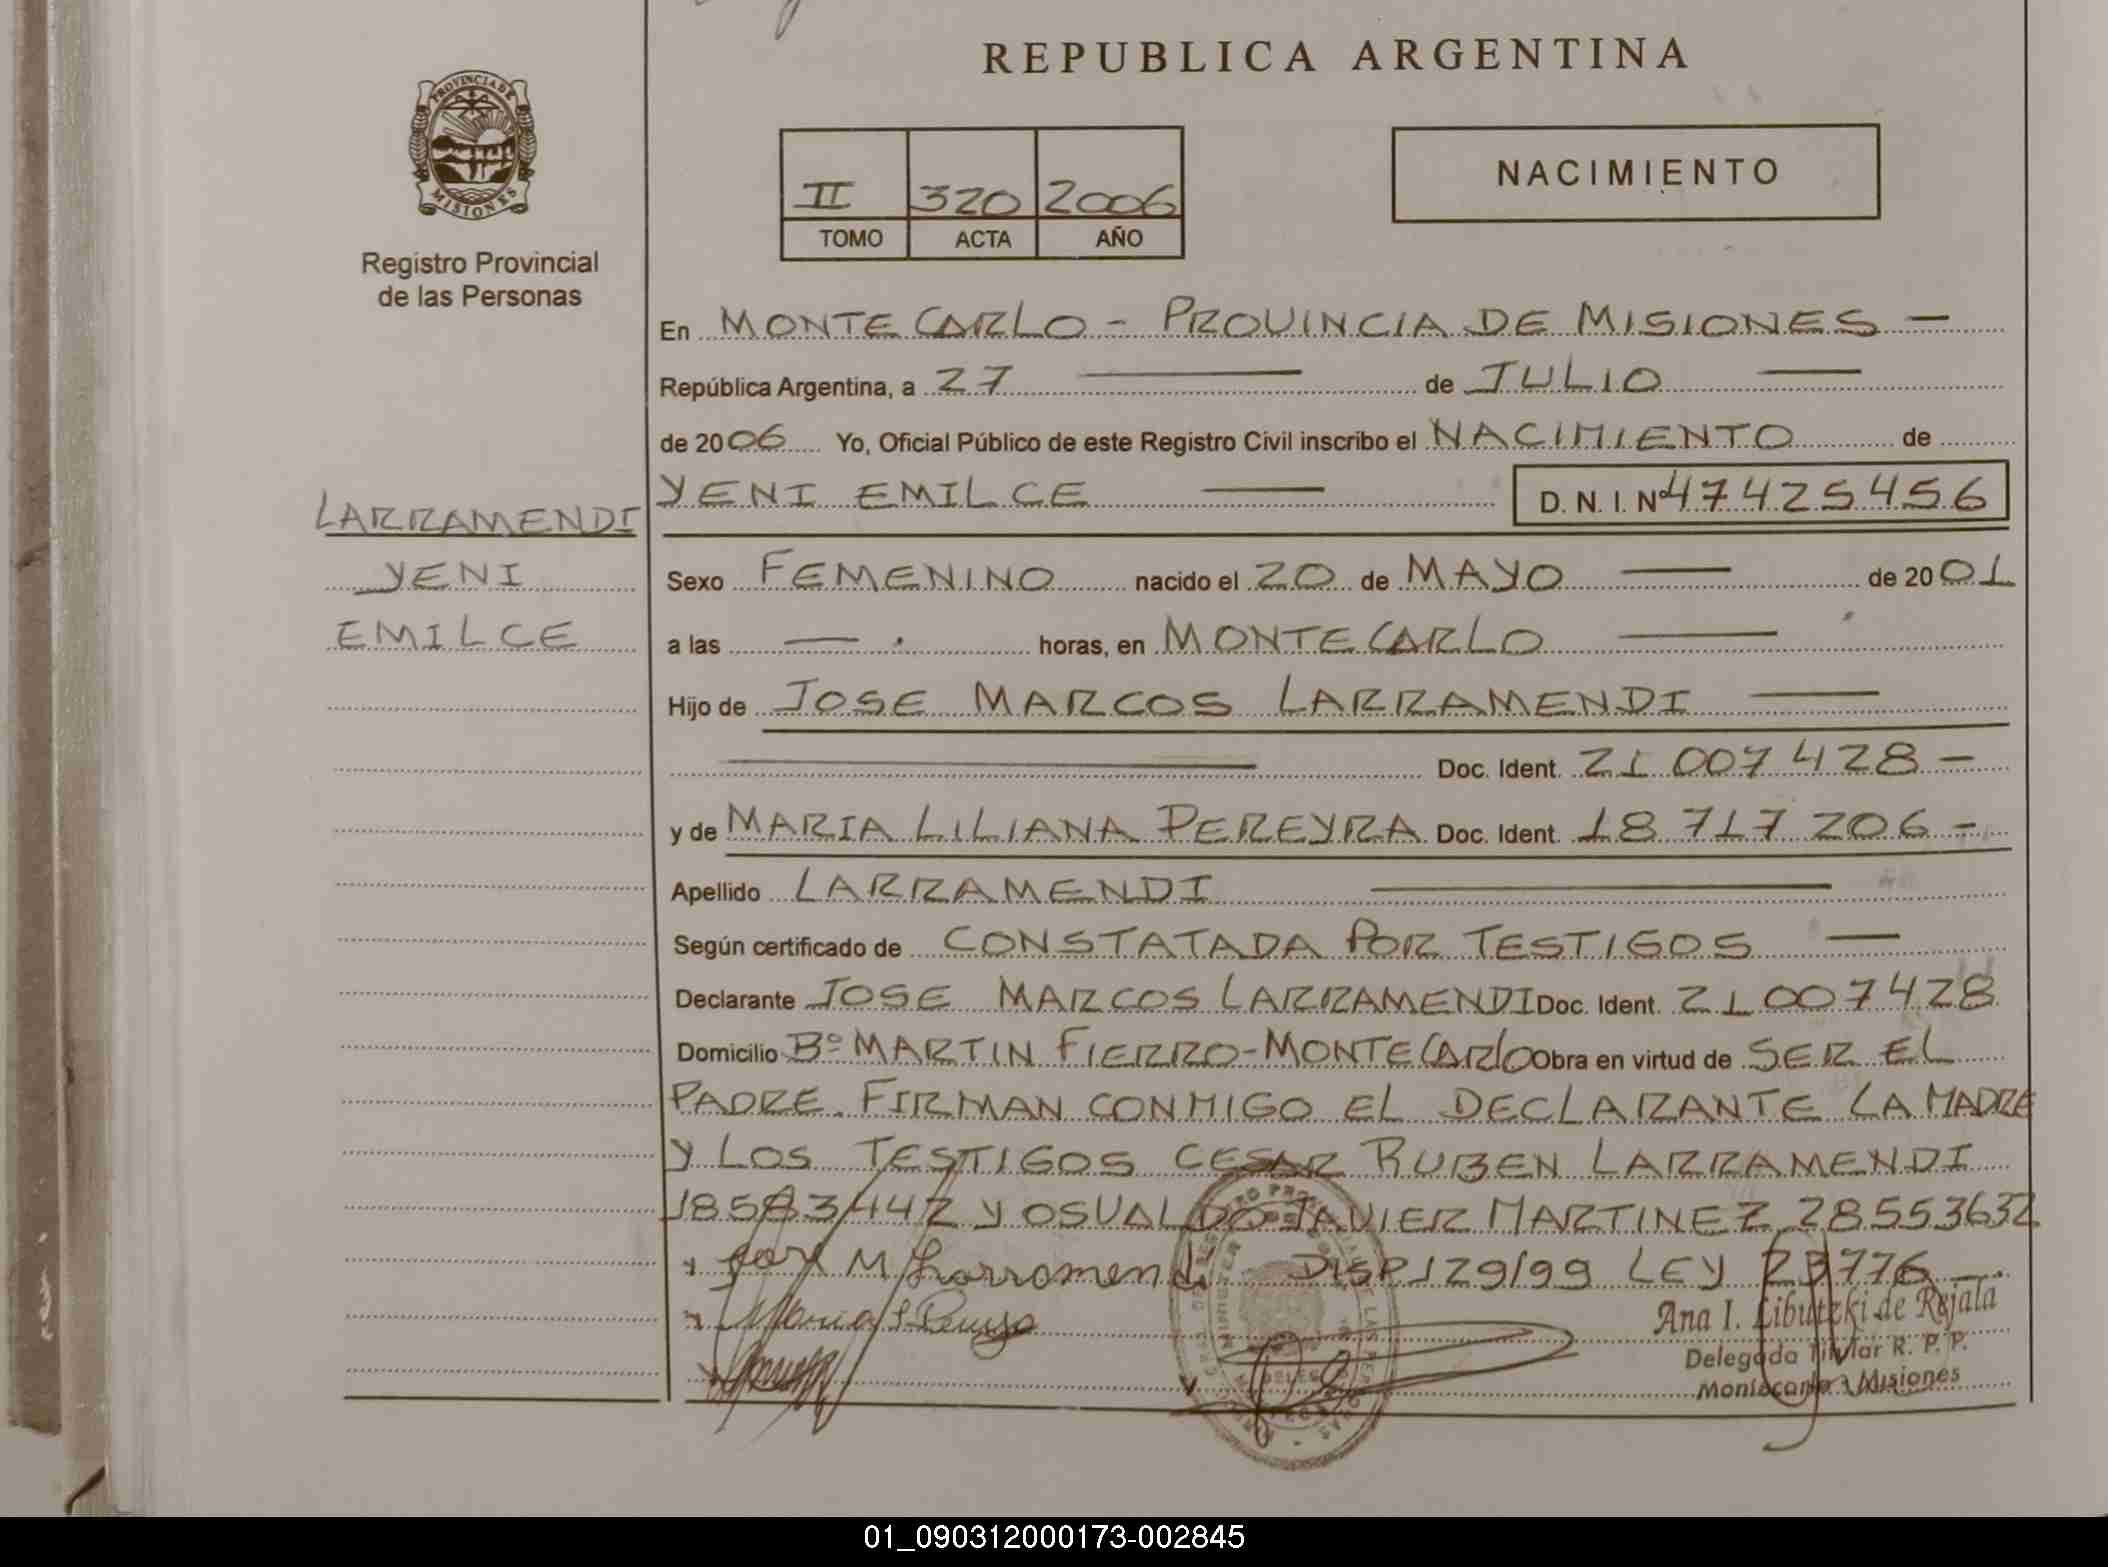 REPUBLICA ARGENTINA
PROVINCIA DE
MISIONES
Registro Provincial
de las Personas
II 320 2006
TOMO ACTA AÑO
NACIMIENTO
En MONTECARLO - PROVINCIA DE MISIONES —
República Argentina, a 27 — de JULIO —
de 2006 Yo, Oficial Público de este Registro Civil inscribo el NACIMIENTO de
YENI EMILCE — D. N. I. Nº 47425456
LARRAMENDI
YENI
EMILCE
Sexo FEMENINO nacido el 20 de MAYO — de 2001
a las — . horas, en MONTECARLO —
Hijo de JOSE MARCOS LARRAMENDI —
— Doc. Ident. 21 007 428 -
y de MARIA LILIANA PEREYRA Doc. Ident. 18 717 206 -
Apellido LARRAMENDI —
Según certificado de CONSTATADA POR TESTIGOS —
Declarante JOSE MARCOS LARRAMENDI Doc. Ident. 21 007428
Domicilio Bº MARTIN FIERRO - MONTECARLO Obra en virtud de SER EL
PADRE. FIRMAN CONMIGO EL DECLARANTE LA MADRE
Y LOS TESTIGOS CESAR RUBEN LARRAMENDI
18583442 Y OSVALDO JAVIER MARTINEZ 28553632
DISP 129/99 LEY 23776 —.
Jose M Larramendi
Maria L Pereyra
Ana I. Libutzki de Rejala
Delegada Titular R. P. P.
Montecarlo - Misiones
01_090312000173-002845